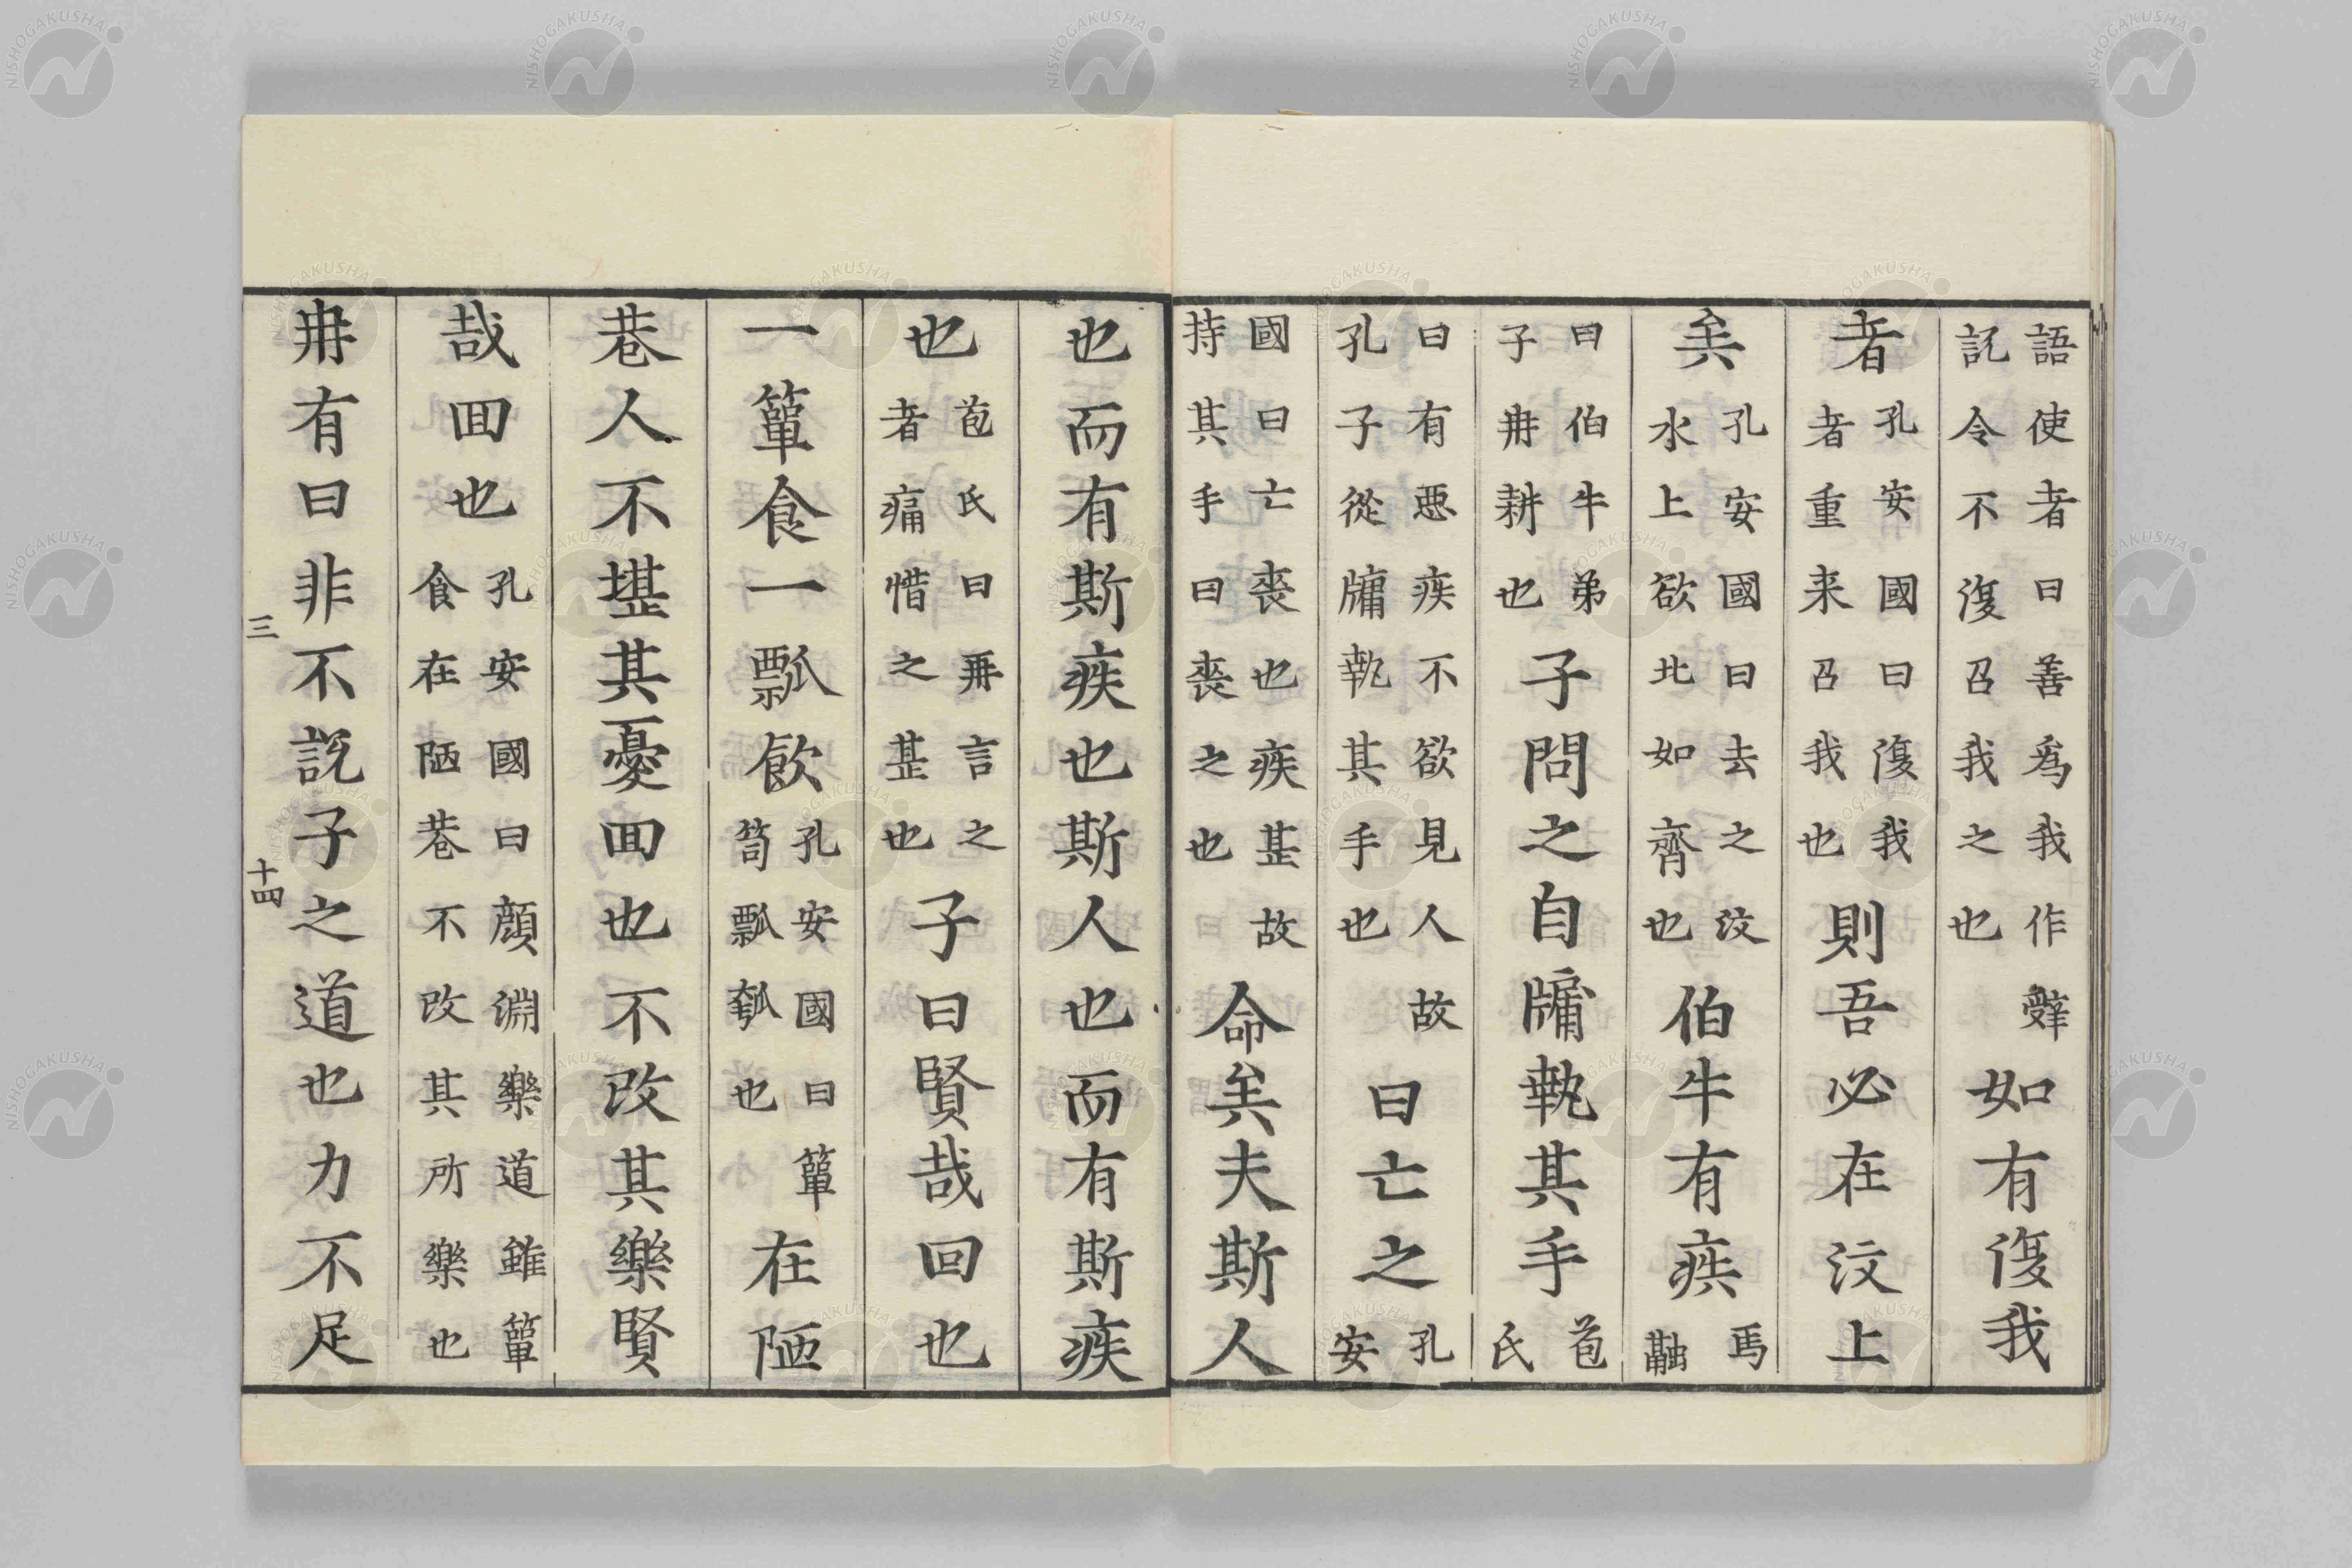 語使者曰善爲我作辤託令不復召我之也如有復我
者孔安國曰復我者重来召我也則吾必在汶上
矣孔安國曰去之汶水上欲北如齊也伯牛有疾馬融
曰伯牛弟子冉耕也子問之自牖執其手苞氏
曰有惡疾不欲見人故孔子從牖執其手也曰亡之孔安
國曰亡喪也疾甚故持其手曰喪之也命矣夫斯人
也而有斯疾也斯人也而有斯疾
也苞氏曰再言之者痛惜之甚也子曰賢哉回也
一簞食一瓢飲孔安國曰簞笥瓢瓠也在陋
巷人不堪其憂囬也不改其樂賢
哉囬也孔安國曰顔淵樂道雖簞食在陋巷不改其所樂也
冉有曰非不説子之道也力不足
三 十四
NISHOGAKUSHA